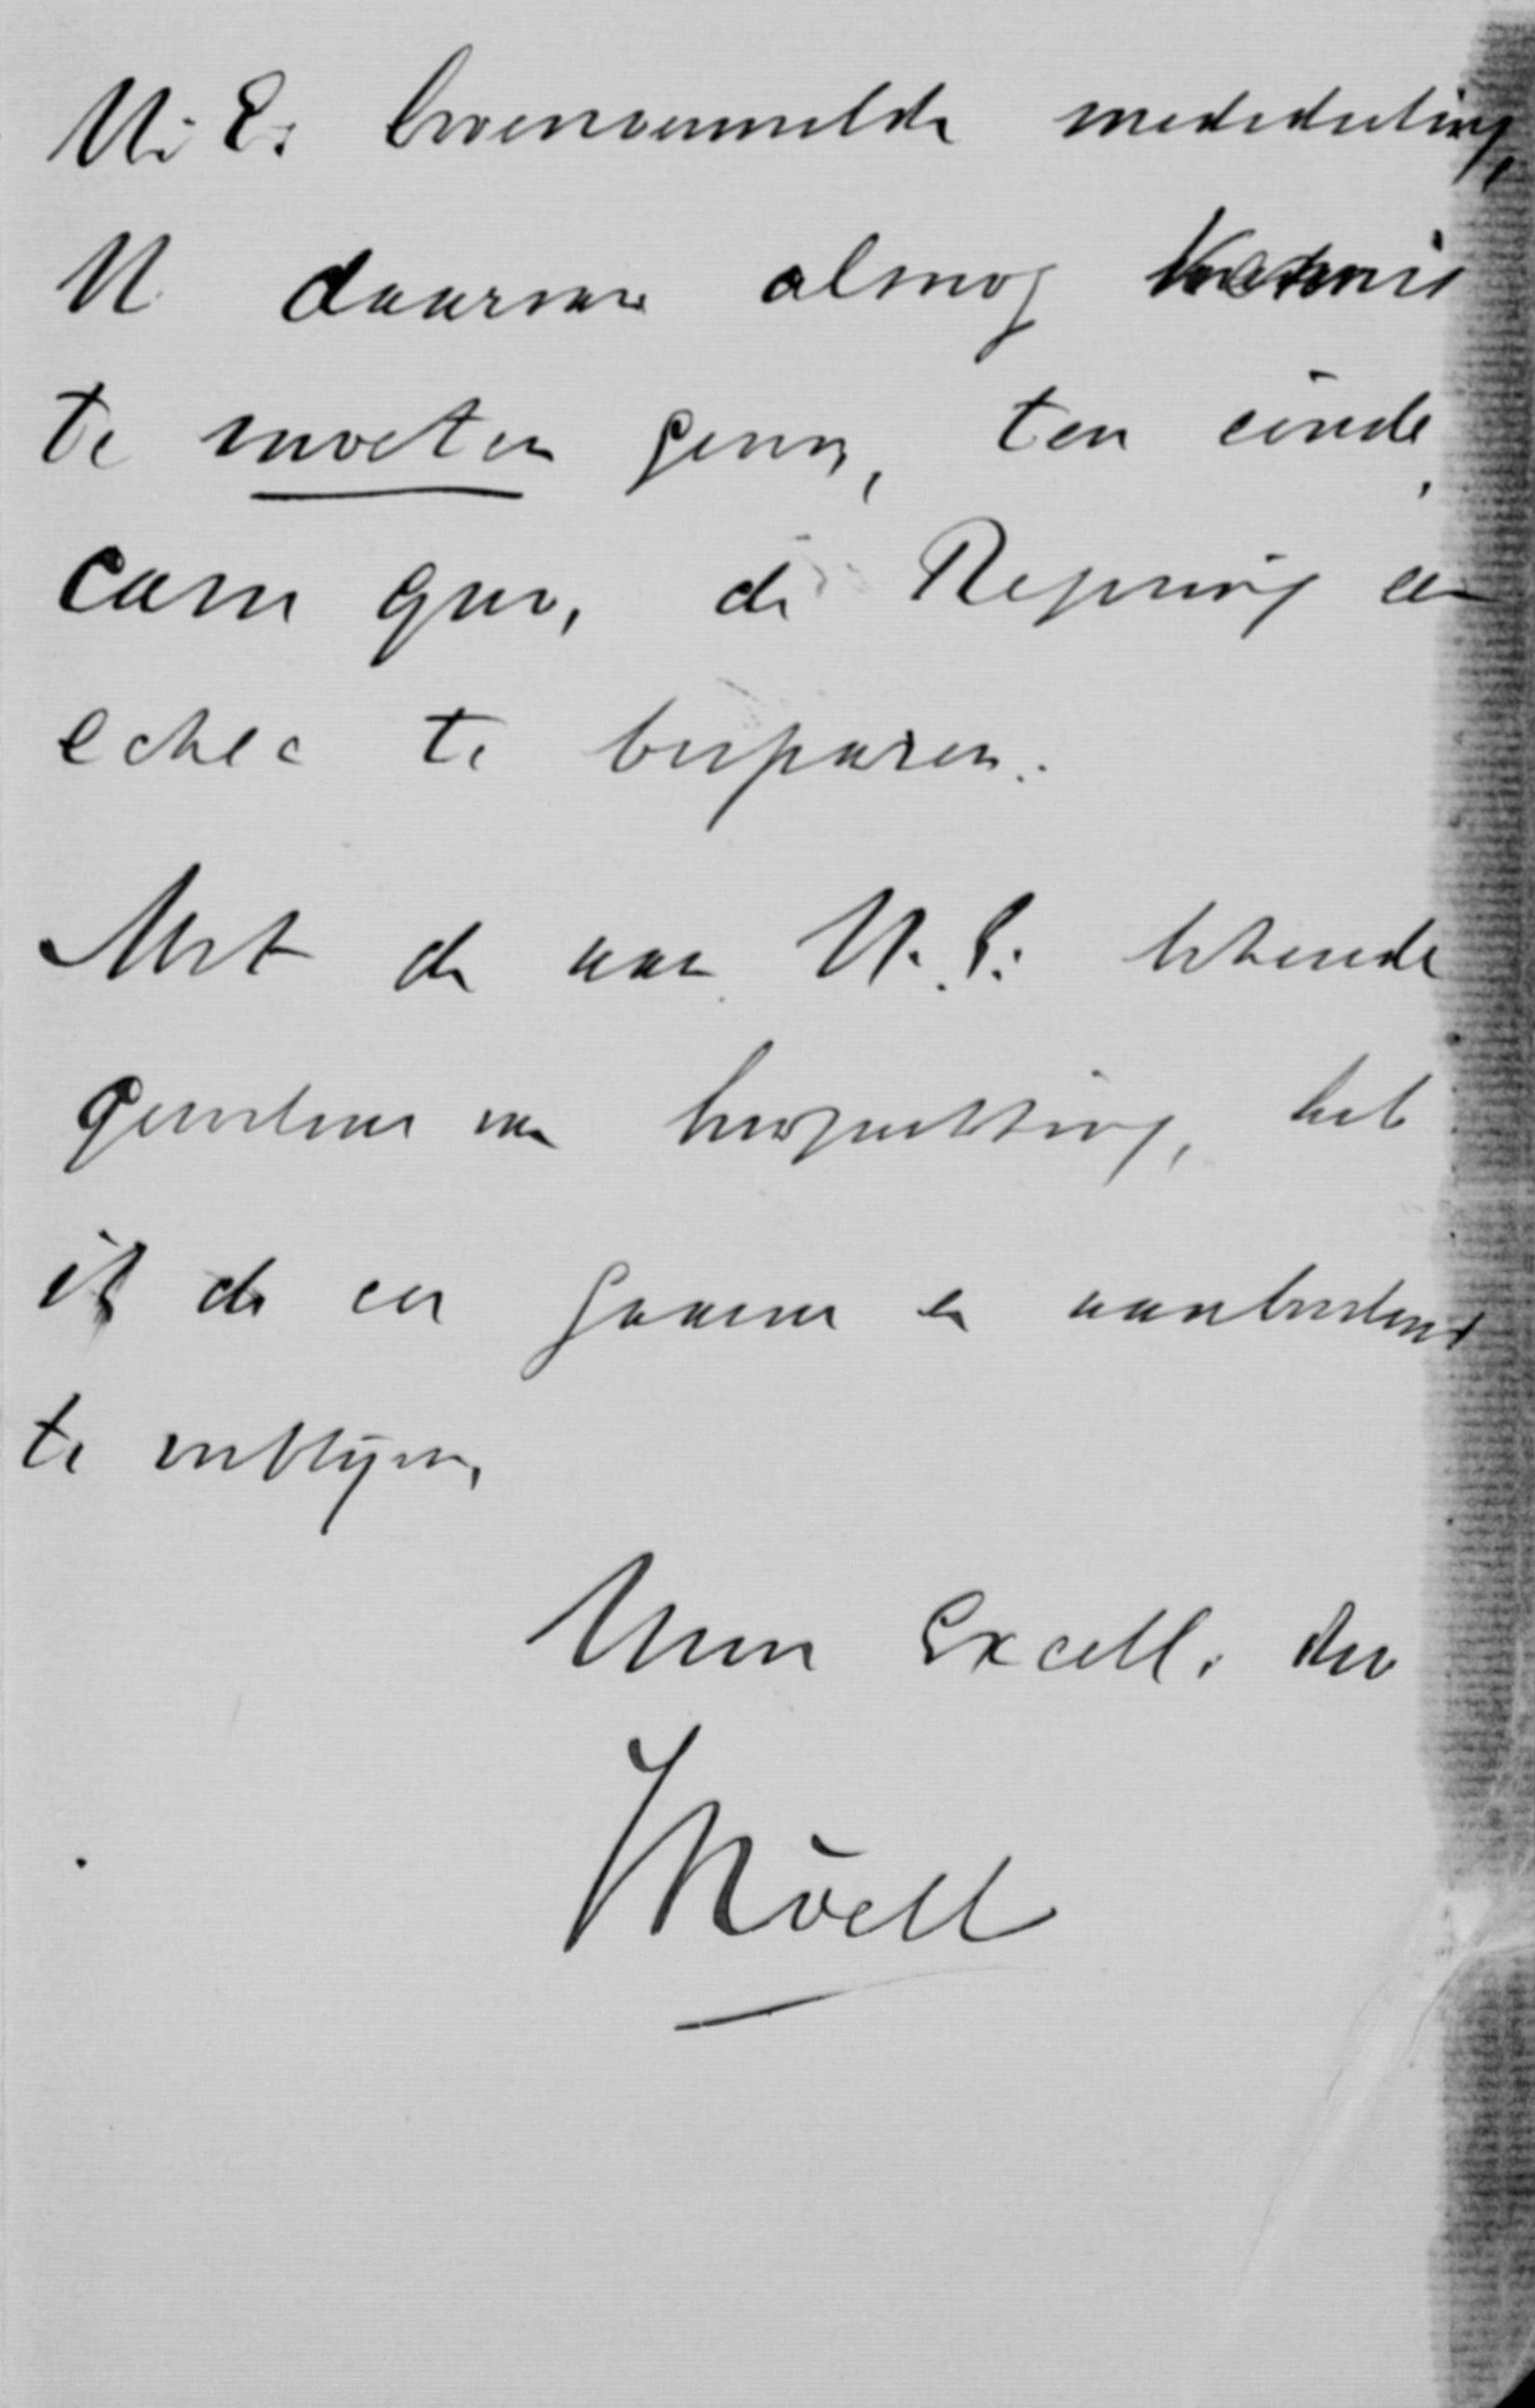 U. E. bovenvermelde mededeeling,
U daarvan alsnog kennis
te moeten geven, ten einde,
casu quo, de Regeering een
echec te besparen.
Met de aan U. E. bekende
gevoelens van hoogachting, heb
ik de eer gaarne en aanbevelend
te verblijven,
Uwer Excell. dw
JRöell